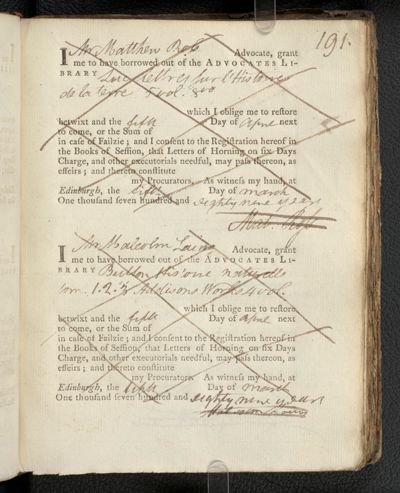 191.
I Mr Matthew Ross Advocate, grant
me to have borrowed out of the ADVOCATES LI-
BRARY Luc Lettres sur l'Histoire
de la terre 5 vol. 8vo
which I oblige me to reſtore
betwixt and the fifth Day of April next
to come, or the Sum of
in caſe of Failzie; and I conſent to the Regiſtration hereof in
the Books of Seſſion, that Letters of Horning on ſix Days
Charge, and other executorials needful, may paſs thereon, as
effeirs; and thereto conſtitute
my Procurators. As witneſs my hand, at
Edinburgh, the fifth Day of march
One thouſand ſeven hundred and eighty nine years
Matt. Roſs
I Mr Malcolm Laing Advocate, grant
me to have borrowed out of the ADVOCATES LI-
BRARY Buffon histoire naturelle
tom. 1. 2. 3. Addisons Works 4 vol.
which I oblige me to reſtore
betwixt and the fifth Day of April next
to come, or the Sum of
in caſe of Failzie; and I conſent to the Regiſtration hereof in
the Books of Seſſion, that Letters of Horning on ſix Days
Charge, and other executorials needful, may paſs thereon, as
effeirs; and thereto conſtitute
my Procurators. As witneſs my hand, at
Edinburgh, the fifth Day of march
One thouſand ſeven hundred and eighty nine years
Malcolm Laing